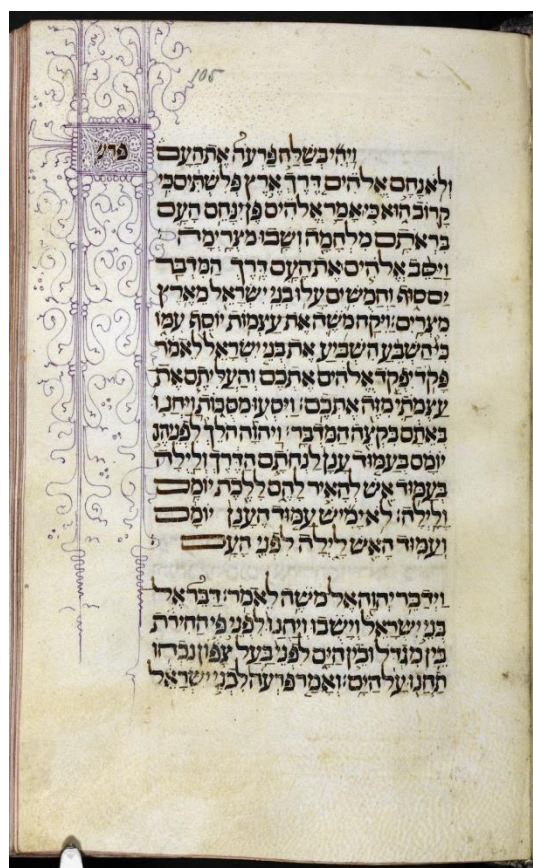 105
פרש
ויהי בשלח פרעה את העם
ולא נחם אלהים דרך ארץ פלשתים כי
קרוב הוא כי אמר אלהים פן ינחם העם
בראתם מלחמה ושבו מצרימה
ויסב אלהים את העם דרך המדבר
ים סוף וחמשים עלו בני ישראל מארץ
מצרים׃ ויקח משה את עצמות יוסף עמו
כי השבע השביע את בני ישראל לאמר
פקד יפקד אלהים אתכם והעליתם את
עצמתי מזה אתכם׃ ויסעו מסכות ויחנו
באתם בקצה המדבר׃ ויהוה הלך לפניהם
יומם בעמוד ענן לנחתם הדרך ולילה
בעמוד אש להאיר להם ללכת יומם
ולילה׃ לא ימיש עמוד הענן יומם
ועמוד האש לילה לפני העם
וידבר יהוה אל משה לאמר׃ דבר אל
בני ישראל וישבו ויחנו לפני פי החירת
בין מגדל ובין הים לפני בעל צפון נכחו
תחנו על הים׃ ואמר פרעה לבני ישראל